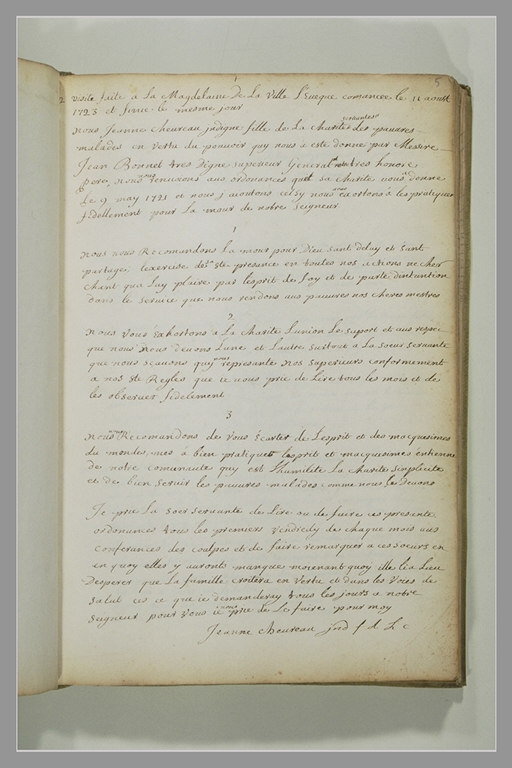 1
5
2 visite faite a La Magdelaine De La Ville l'Eveque comancee le 11 aoust
1723 et finie le mesme jour
servantes
nous Jeanne cheureau indigne fille de La charité des pauvres
malades en vertu du pouvoir quy nous a este donne par Messire
Jean Bonnet tres digne superieur General notre tres honoré
pere, nous renuoions aus ordonances que sa charite vous a donne
Le 9 may 1721 et nous j'aioutons celsy nous vous exortons a les pratiquer
fidellement pour La mour de notre seigneur
1
nous vous Recomandons La mour pour Dieu sant delay et sant
partage, lexercise de sa ste presance en toutes nos actions ne cher
chant qua Luy plaire par lesprit de foy et de purte dintantion
dans le service que nous rendons aus pauvres nos cheres mestres
2
nous vous Exhortons a La charite Lunion Le suport et aus respec
que nous nous devons Lune et Lautre surtout a La soeur servante
que nous scauons quy vous represante nos superieurs conformement
a nos ste Regles que je vous prie de Lire tous les mois et de
les observer fidelement
3
nous vous Recomandons de vous Ecarter de Lesprit et des macquesimes
du monde, mes a bien pratiquer lesprit et macquesimes
de notre comunauté quy est l'humilité La charité simplicité
et de bien servir les pauvres malades comme nous le devons
Je prie La soer servante de Lire ou de faire ces presante
ordonances tous les premiers vendredy de chaque mois aus
conferances des coulpes et de faire remarquer a ces soeurs en
en quoy elles y auront manques moienant quoy ille lia Lieu
Desperer que La famille croitera en vertu et dans les voies de
salut ces ce que je demanderay tous les jours a notre
seigneur pour vous je vous prie de Le faire pour moy
Jeanne cheureau ind f d L c